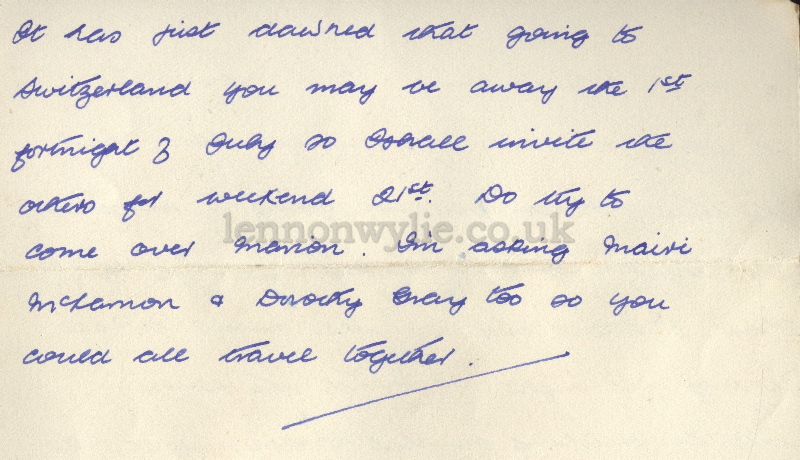 It has just dawned that going to
Switzerland you may be away the 1st
fortnight of July so I shall invite the
others for weekend 21st. Do try to
lennonwylie.co.uk
come over Marion. I'm asking Mairi
McLarnon & Dorothy Gray too so you
could all travel together.